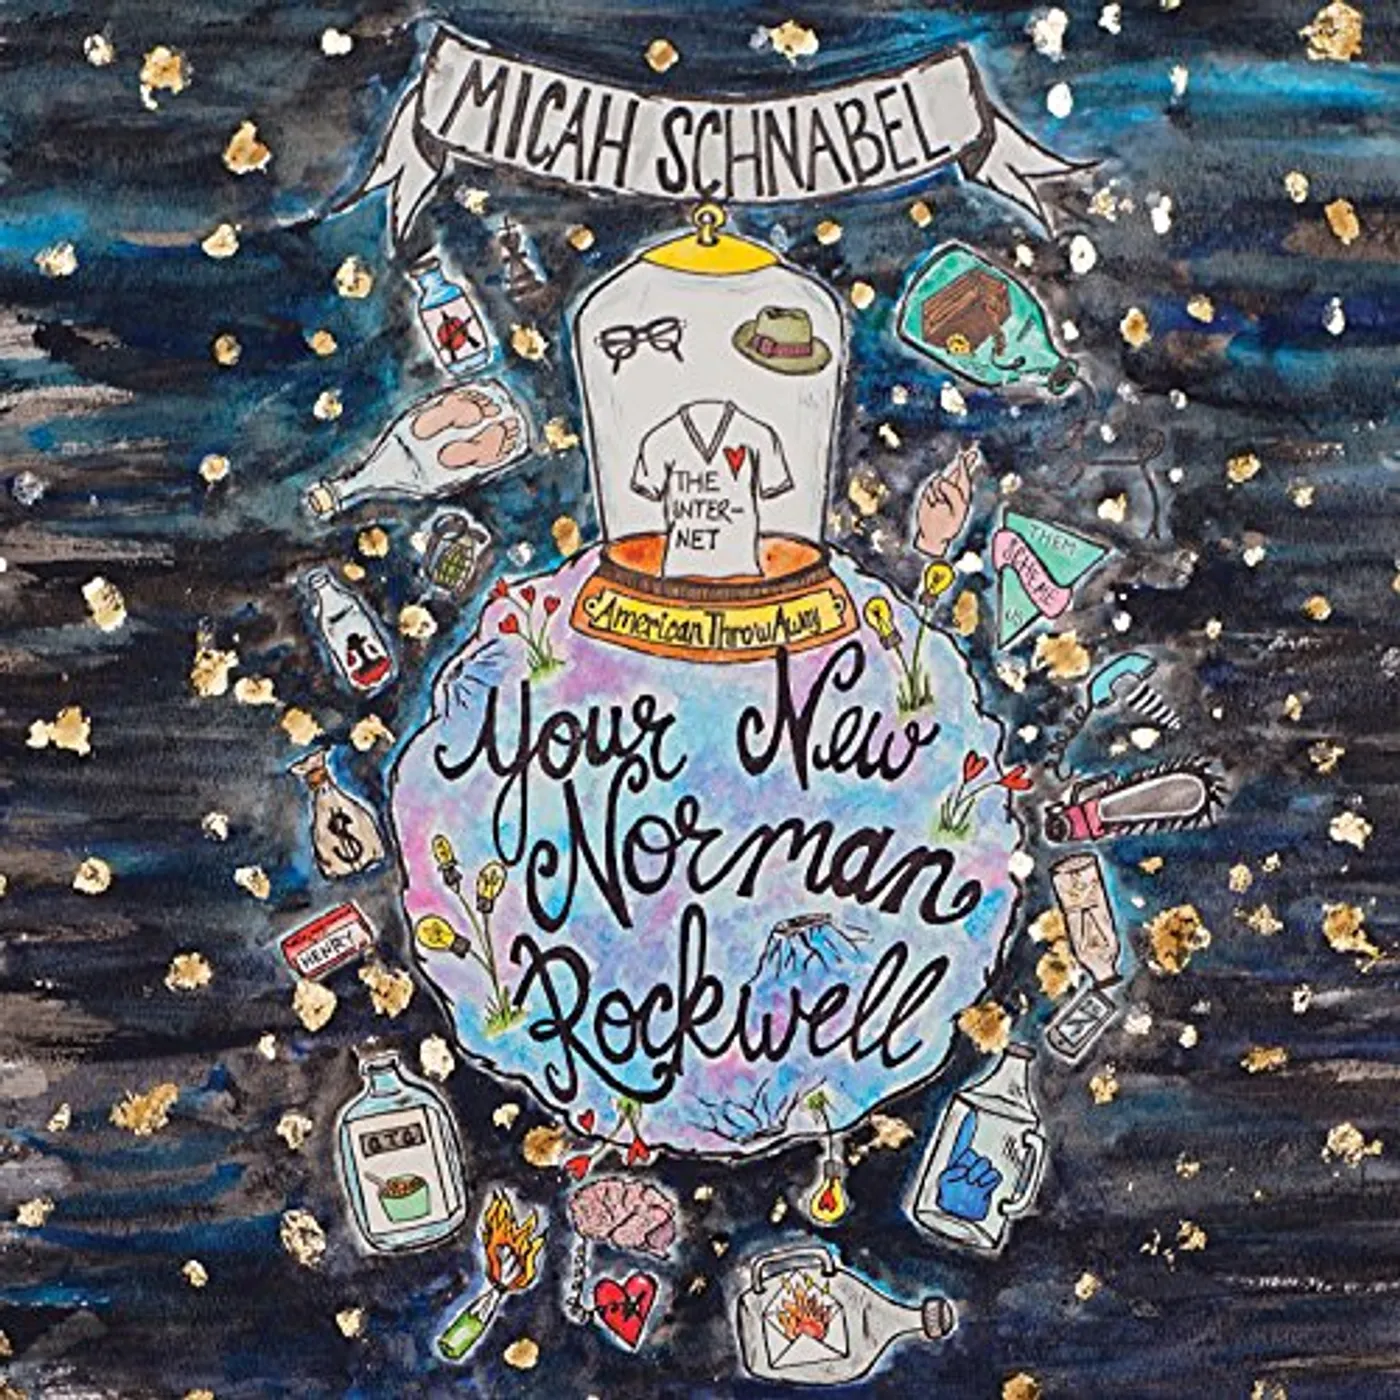 MICAH SCHNABEL
THE
INTER-
NET
American ThrowAway
THEM
SCHEME
US
Your New
Norman
Rockwell
$
HENRY